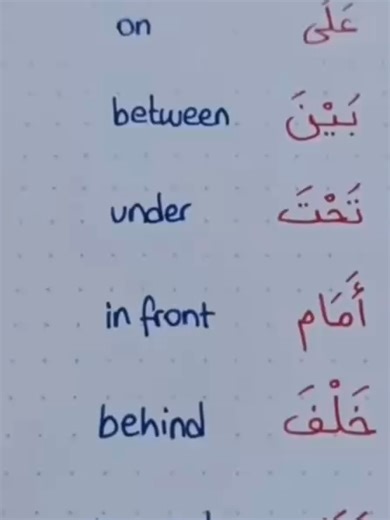 on عَلَى
between بَيْنَ
under تَحْتَ
in front أَمَام
behind خَلْفَ